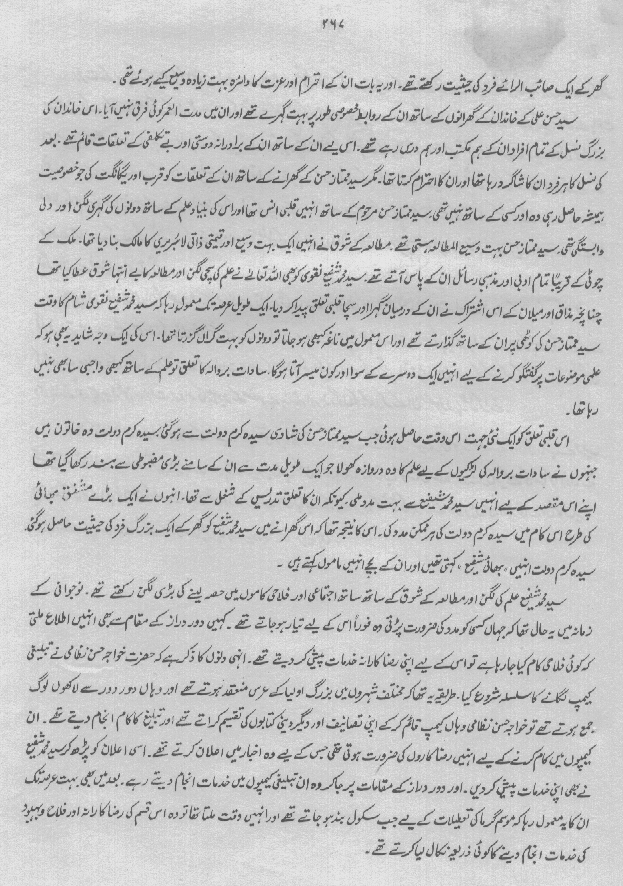 ۲۶۷
گھر کے ایک صاحب الرائے فرد کی حیثیت رکھتے تھے۔ اور یہ بات ان کے احترام اور عزت کا دائرہ بہت زیادہ وسیع کیے ہوئے تھی۔
سید حسن علی کے خاندان کے گھرانوں کے ساتھ ان کے روابط خصوصی طور پر بہت گہرے تھے اور ان میں مدت العمر کوئی فرق نہیں آیا۔ اس خاندان کی
بزرگ نسل کے تمام افراد ان کے ہم مکتب اور ہم درس رہے تھے۔ اس لیے ان کے ساتھ ان کے برادرانہ دوستی اور بے تکلفی کے تعلقات قائم تھے۔ بعد
کی نسل کا ہر فرد ان کا شاگرد رہا تھا اور ان کا احترام کرتا تھا۔ مگر سید ممتاز حسن کے گھرانے کے ساتھ ان کے تعلقات کو قرب اور یگانگت کی جو خصوصیت
ہمیشہ حاصل رہی وہ اور کسی کے ساتھ نہیں تھی۔ سید ممتاز حسن مرحوم کے ساتھ انہیں قلبی انس تھا اور اس کی بنیاد علم کے ساتھ دونوں کی گہری لگن اور دلی
وابستگی تھی۔ سید ممتاز حسن بہت وسیع المطالعہ ہستی تھے۔ مطالعہ کے شوق نے انہیں ایک بہت وسیع اور قیمتی ذاتی لائبریری کا مالک بنا دیا تھا۔ ملک کے
چوٹی کے قریباً تمام ادبی اور مذہبی رسائل ان کے پاس آتے تھے۔ سید محمد شفیع نقوی کو بھی اللہ تعالےٰ نے علم کی سچی لگن اور مطالعہ کا بے انتہا شوق عطا کیا تھا
چنانچہ مذاق اور میلان کے اس اشتراک نے ان کے درمیان گہرا اور سچا قلبی تعلق پیدا کر دیا۔ ایک طویل عرصہ تک معمول رہا کہ سید محمد شفیع نقوی شام کا وقت
سید ممتاز حسن کی کوٹھی پر ان کے ساتھ گذارتے تھے اور اس معمول میں ناغہ کبھی ہو جاتا تو دونوں کو بہت گراں گزرتا تھا۔ اس کی ایک وجہ شاید یہ بھی ہو کہ
علمی موضوعات پر گفتگو کرنے کے لیے انہیں ایک دوسرے کے سوا اور کون میسر آتا ہوگا۔ سادات بروالہ کا تعلق تو علم کے ساتھ کبھی واجبی سا بھی نہیں
رہا تھا۔
اس قلبی تعلق کو ایک نئی جہت اس وقت حاصل ہوئی جب سید ممتاز حسن کی شادی سیدہ کرم دولت سے ہو گئی۔ سیدہ کرم دولت وہ خاتون ہیں
جنہوں نے سادات بروالہ کی لڑکیوں کے لیے علم کا وہ دروازہ کھولا جو ایک طویل مدت سے ان کے سامنے بڑی مضبوطی سے بند رکھا گیا تھا
اپنے اس مقصد کے لیے انہیں سید محمد شفیع سے بہت مدد ملی کیونکہ ان کا تعلق تدریس کے شغل سے تھا۔ انہوں نے ایک بڑے مشفق بھائی
کی طرح اس کام میں سیدہ کرم دولت کی ہر ممکن مدد کی۔ اس کا نتیجہ تھا کہ اس گھرانے میں سید محمد شفیع کو گھر کے ایک بزرگ فرد کی حیثیت حاصل ہو گئی
سیدہ کرم دولت انہیں ‚بھائی شفیع‚ کہتی تھیں اور ان کے بچے انہیں ماموں کہتے ہیں۔
سید محمد شفیع علم کی لگن اور مطالعہ کے شوق کے ساتھ ساتھ اجتماعی اور فلاحی کاموں میں حصہ لینے کی بڑی لگن رکھتے تھے۔ نوجوانی کے
زمانہ میں یہ حال تھا کہ جہاں کسی کو مدد کی ضرورت پڑتی وہ فوراً اس کے لیے تیار ہو جاتے تھے۔ کہیں دور دراز کے مقام سے بھی انہیں اطلاع ملتی
کہ کوئی فلاحی کام کیا جا رہا ہے تو اس کے لیے اپنی رضا کارانہ خدمات پیش کر دیتے تھے۔ انہی دنوں کا ذکر ہے کہ حضرت خواجہ حسن نظامی نے تبلیغی
کیمپ لگانے کا سلسلہ شروع کیا۔ طریقہ یہ تھا کہ مختلف شہروں میں بزرگ اولیا کے عرس منعقد ہوتے تھے اور وہاں دور دور سے لاکھوں لوگ
جمع ہوتے تھے تو خواجہ حسن نظامی وہاں کیمپ قائم کر کے اپنی تصانیف اور دیگر دینی کتابوں کی تقسیم کراتے تھے اور تبلیغ کا کام انجام دیتے تھے۔ ان
کیمپوں میں کام کرنے کے لیے انہیں رضا کاروں کی ضرورت ہوتی تھی جس کے لیے وہ اخبار میں اعلان کرتے تھے۔ اسی اعلان کو پڑھ کر سید محمد شفیع
نے بھی اپنی خدمات پیش کر دیں۔ اور دور دراز کے مقامات پر جا کر وہ ان تبلیغی کیمپوں میں خدمات انجام دیتے رہے۔ بعد میں بھی بہت عرصہ تک
ان کا یہ معمول رہا کہ موسم گرما کی تعطیلات کے لیے جب سکول بند ہو جاتے تھے اور انہیں وقت ملتا تھا تو وہ اس قسم کی رضا کارانہ اور فلاح و بہبود
کی خدمات انجام دینے کا کوئی ذریعہ نکال لیا کرتے تھے۔